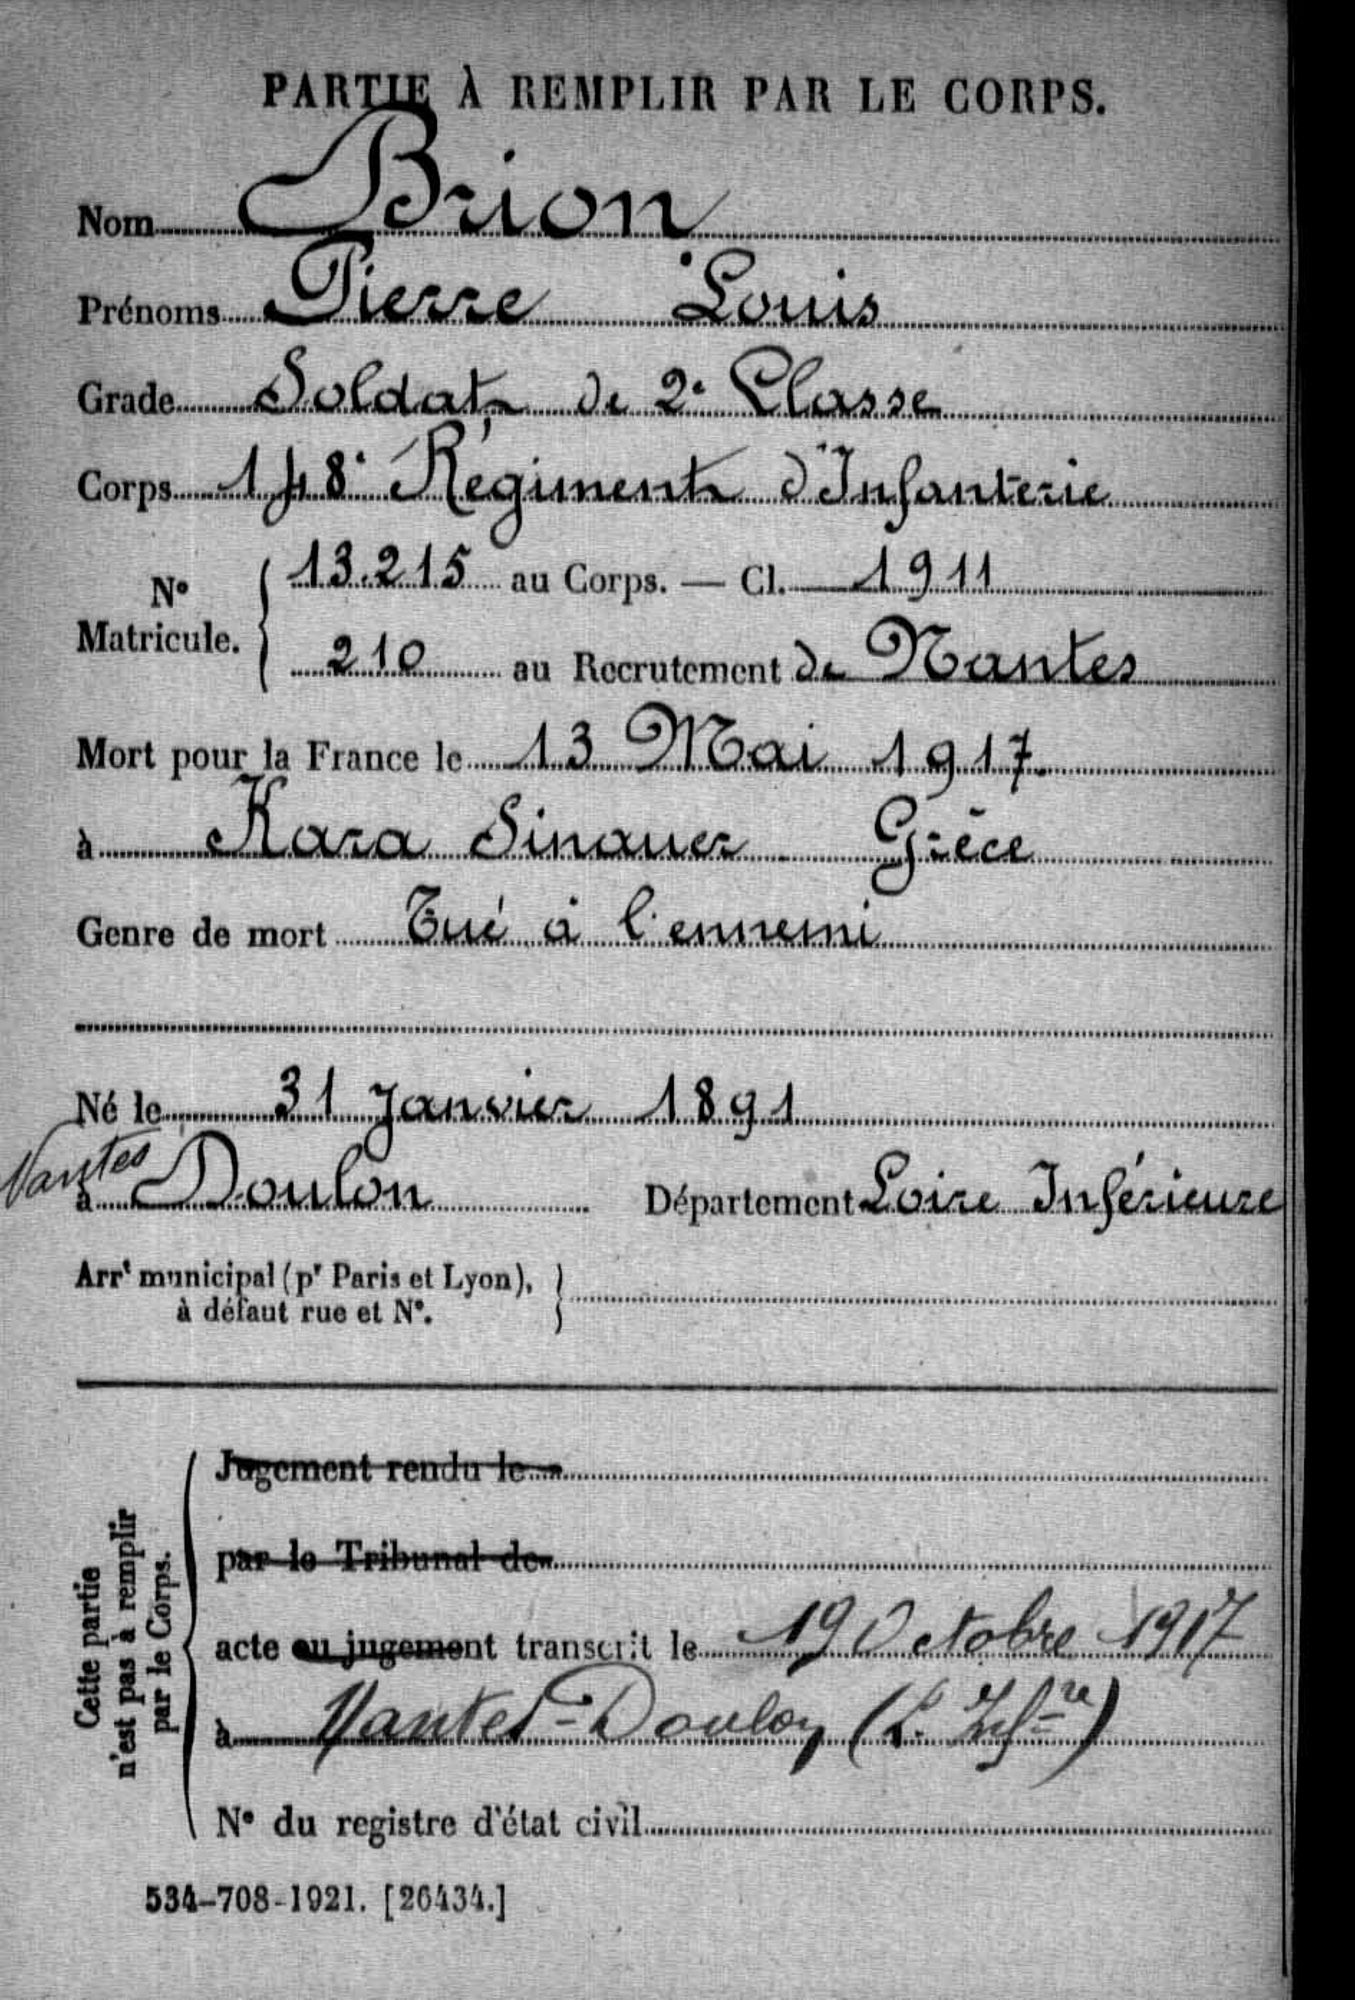 PARTIE À REMPLIR PAR LE CORPS.
Nom Brion
Prénoms Pierre Louis
Grade Soldat de 2e Classe
Corps 148e Régiment d'Infanterie
No Matricule. { 13.215 au Corps. — Cl. 1911
210 au Recrutement de Nantes
Mort pour la France le 13 Mai 1917
à Kara Sinauer Grèce
Genre de mort Tué à l'ennemi
Né le 31 Janvier 1891
Nantes
à Doulon Département Loire Inférieure
Arrt municipal (pr Paris et Lyon),
à défaut rue et No.
Cette partie
n'est pas à remplir
par le Corps.
Jugement rendu le
par le Tribunal de
acte ou jugement transcrit le 19 Octobre 1917
à Nantes-Doulon (L. Infre)
No du registre d'état civil
534-708-1921. [26434.]